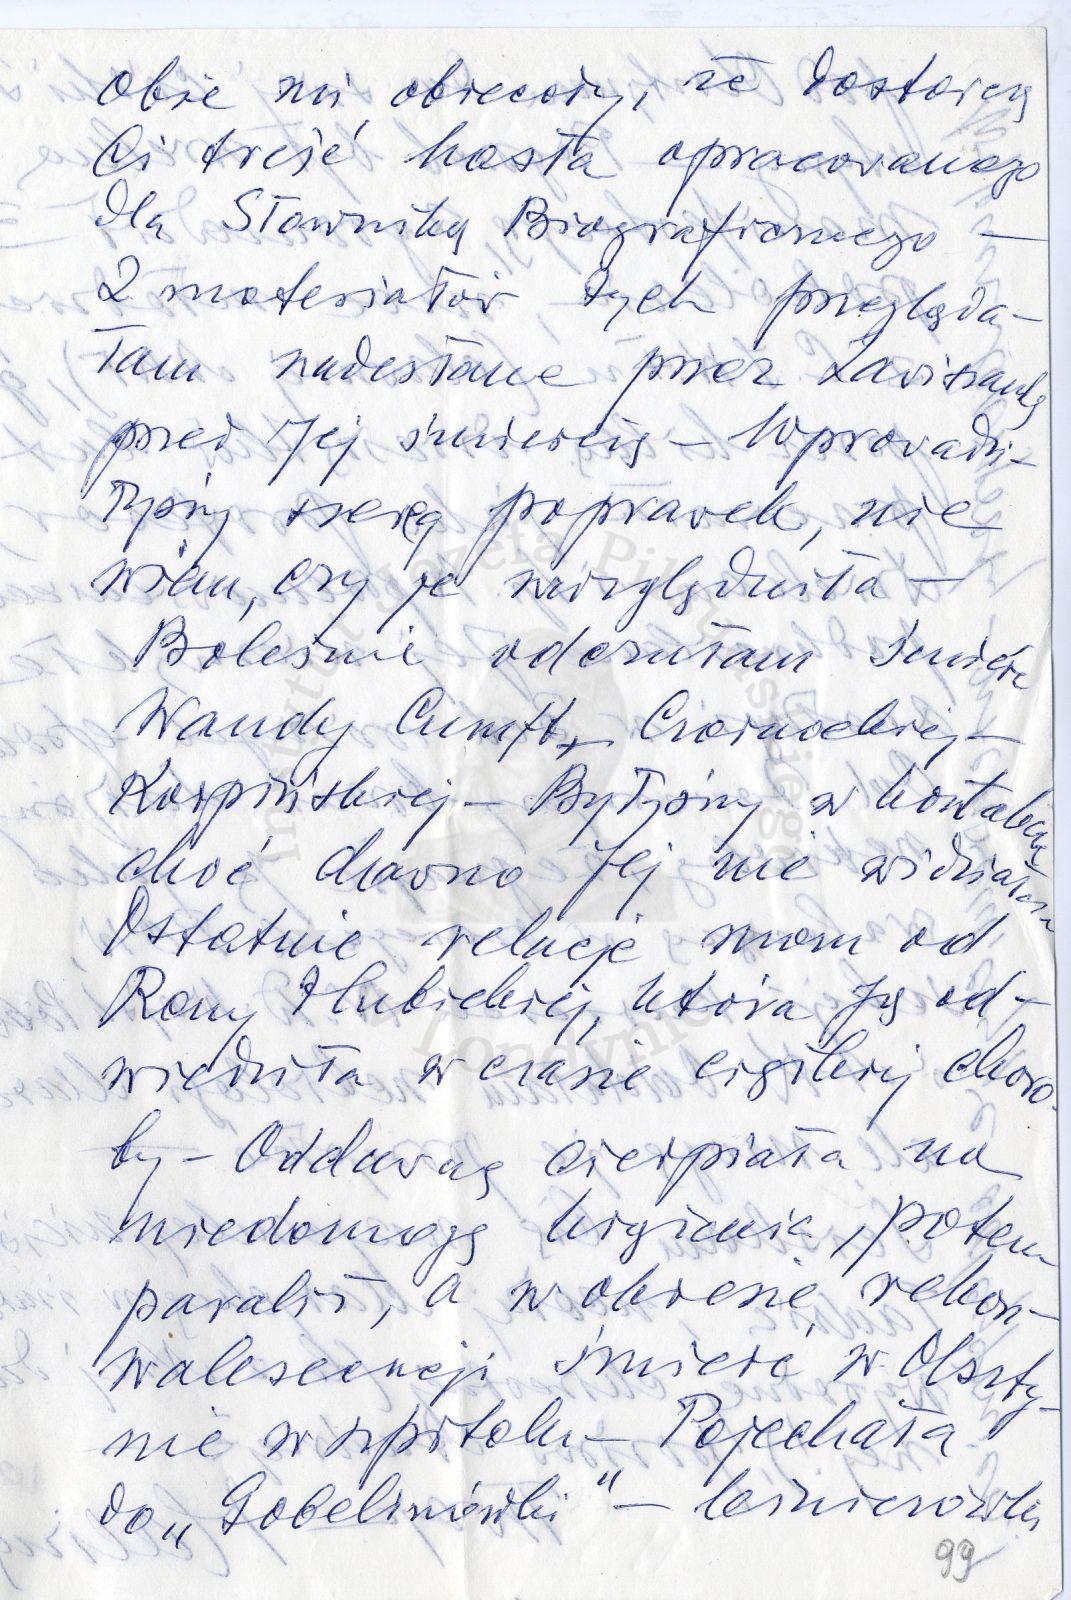 Obie mi obiecały, że dostarczą
Ci treść hasła opracowanego
dla Słownika Biograficznego –
Z materiałów tych przegląda–
łam nadesłane przez Zawiszankę
przed Jej śmiercią – Wprowadzi–
łyśmy szereg poprawek, nie
wiem, czy je uwzględniła –
Boleśnie odczułam śmierć
Wandy Cumft, Czarnockiej –
Karpińskiej – Byłyśmy w kontakcie
choć dawno Jej nie widziałam
Ostatnie relacje mam od
Romy Hubickiej, która Ją od–
wiedziła w czasie ciężkiej choro–
by – Oddawna cierpiała na
niedomogę krążenia, potem
paraliż, a w okresie rekon–
walescencji śmierć w Olszty–
nie w szpitalu – Pojechała
do „Gobelinówki" – leśniczówki
99
Instytut Józefa Piłsudskiego
w Londynie